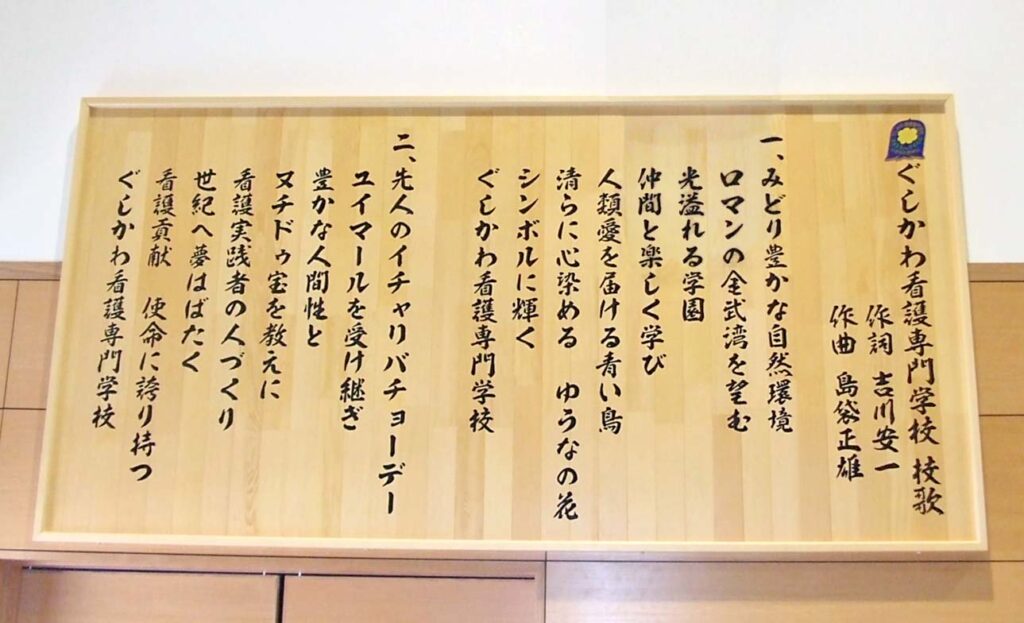 ぐしかわ看護専門学校 校歌
作詞 吉川安一
作曲 島袋正雄
一、みどり豊かな自然環境
ロマンの金武湾を望む
光溢れる学園
仲間と楽しく学び
人類愛を届ける青い鳥
清らに心染める ゆうなの花
シンボルに輝く
ぐしかわ看護専門学校
二、先人のイチャリバチョーデー
ユイマールを受け継ぎ
豊かな人間性と
ヌチドゥ宝を教えに
看護実践者の人づくり
世紀へ夢はばたく
看護貢献 使命に誇り持つ
ぐしかわ看護専門学校